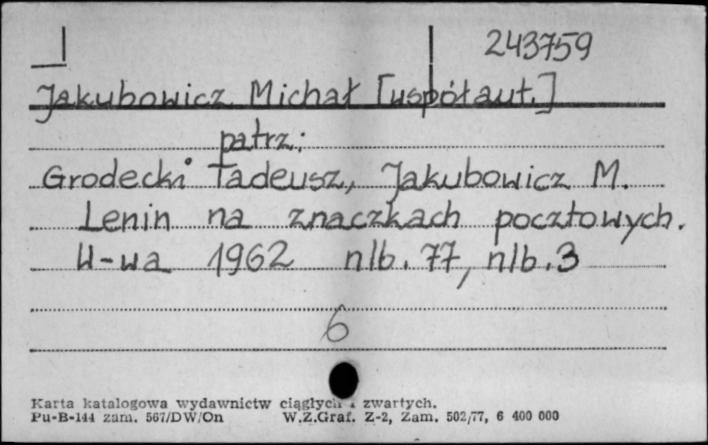 243759
Jakubowicz Michał [współaut.]
patrz:
Grodecki Tadeusz, Jakubowicz M.
Lenin na znaczkach pocztowych.
W-wa 1962 nlb. 77, nlb. 3
6
Karta katalogowa wydawnictw ciągłych i zwartych.
Pu-B-144 zam. 567/DW/On W.Z.Graf. Z-2, Zam. 502/77, 6 400 000